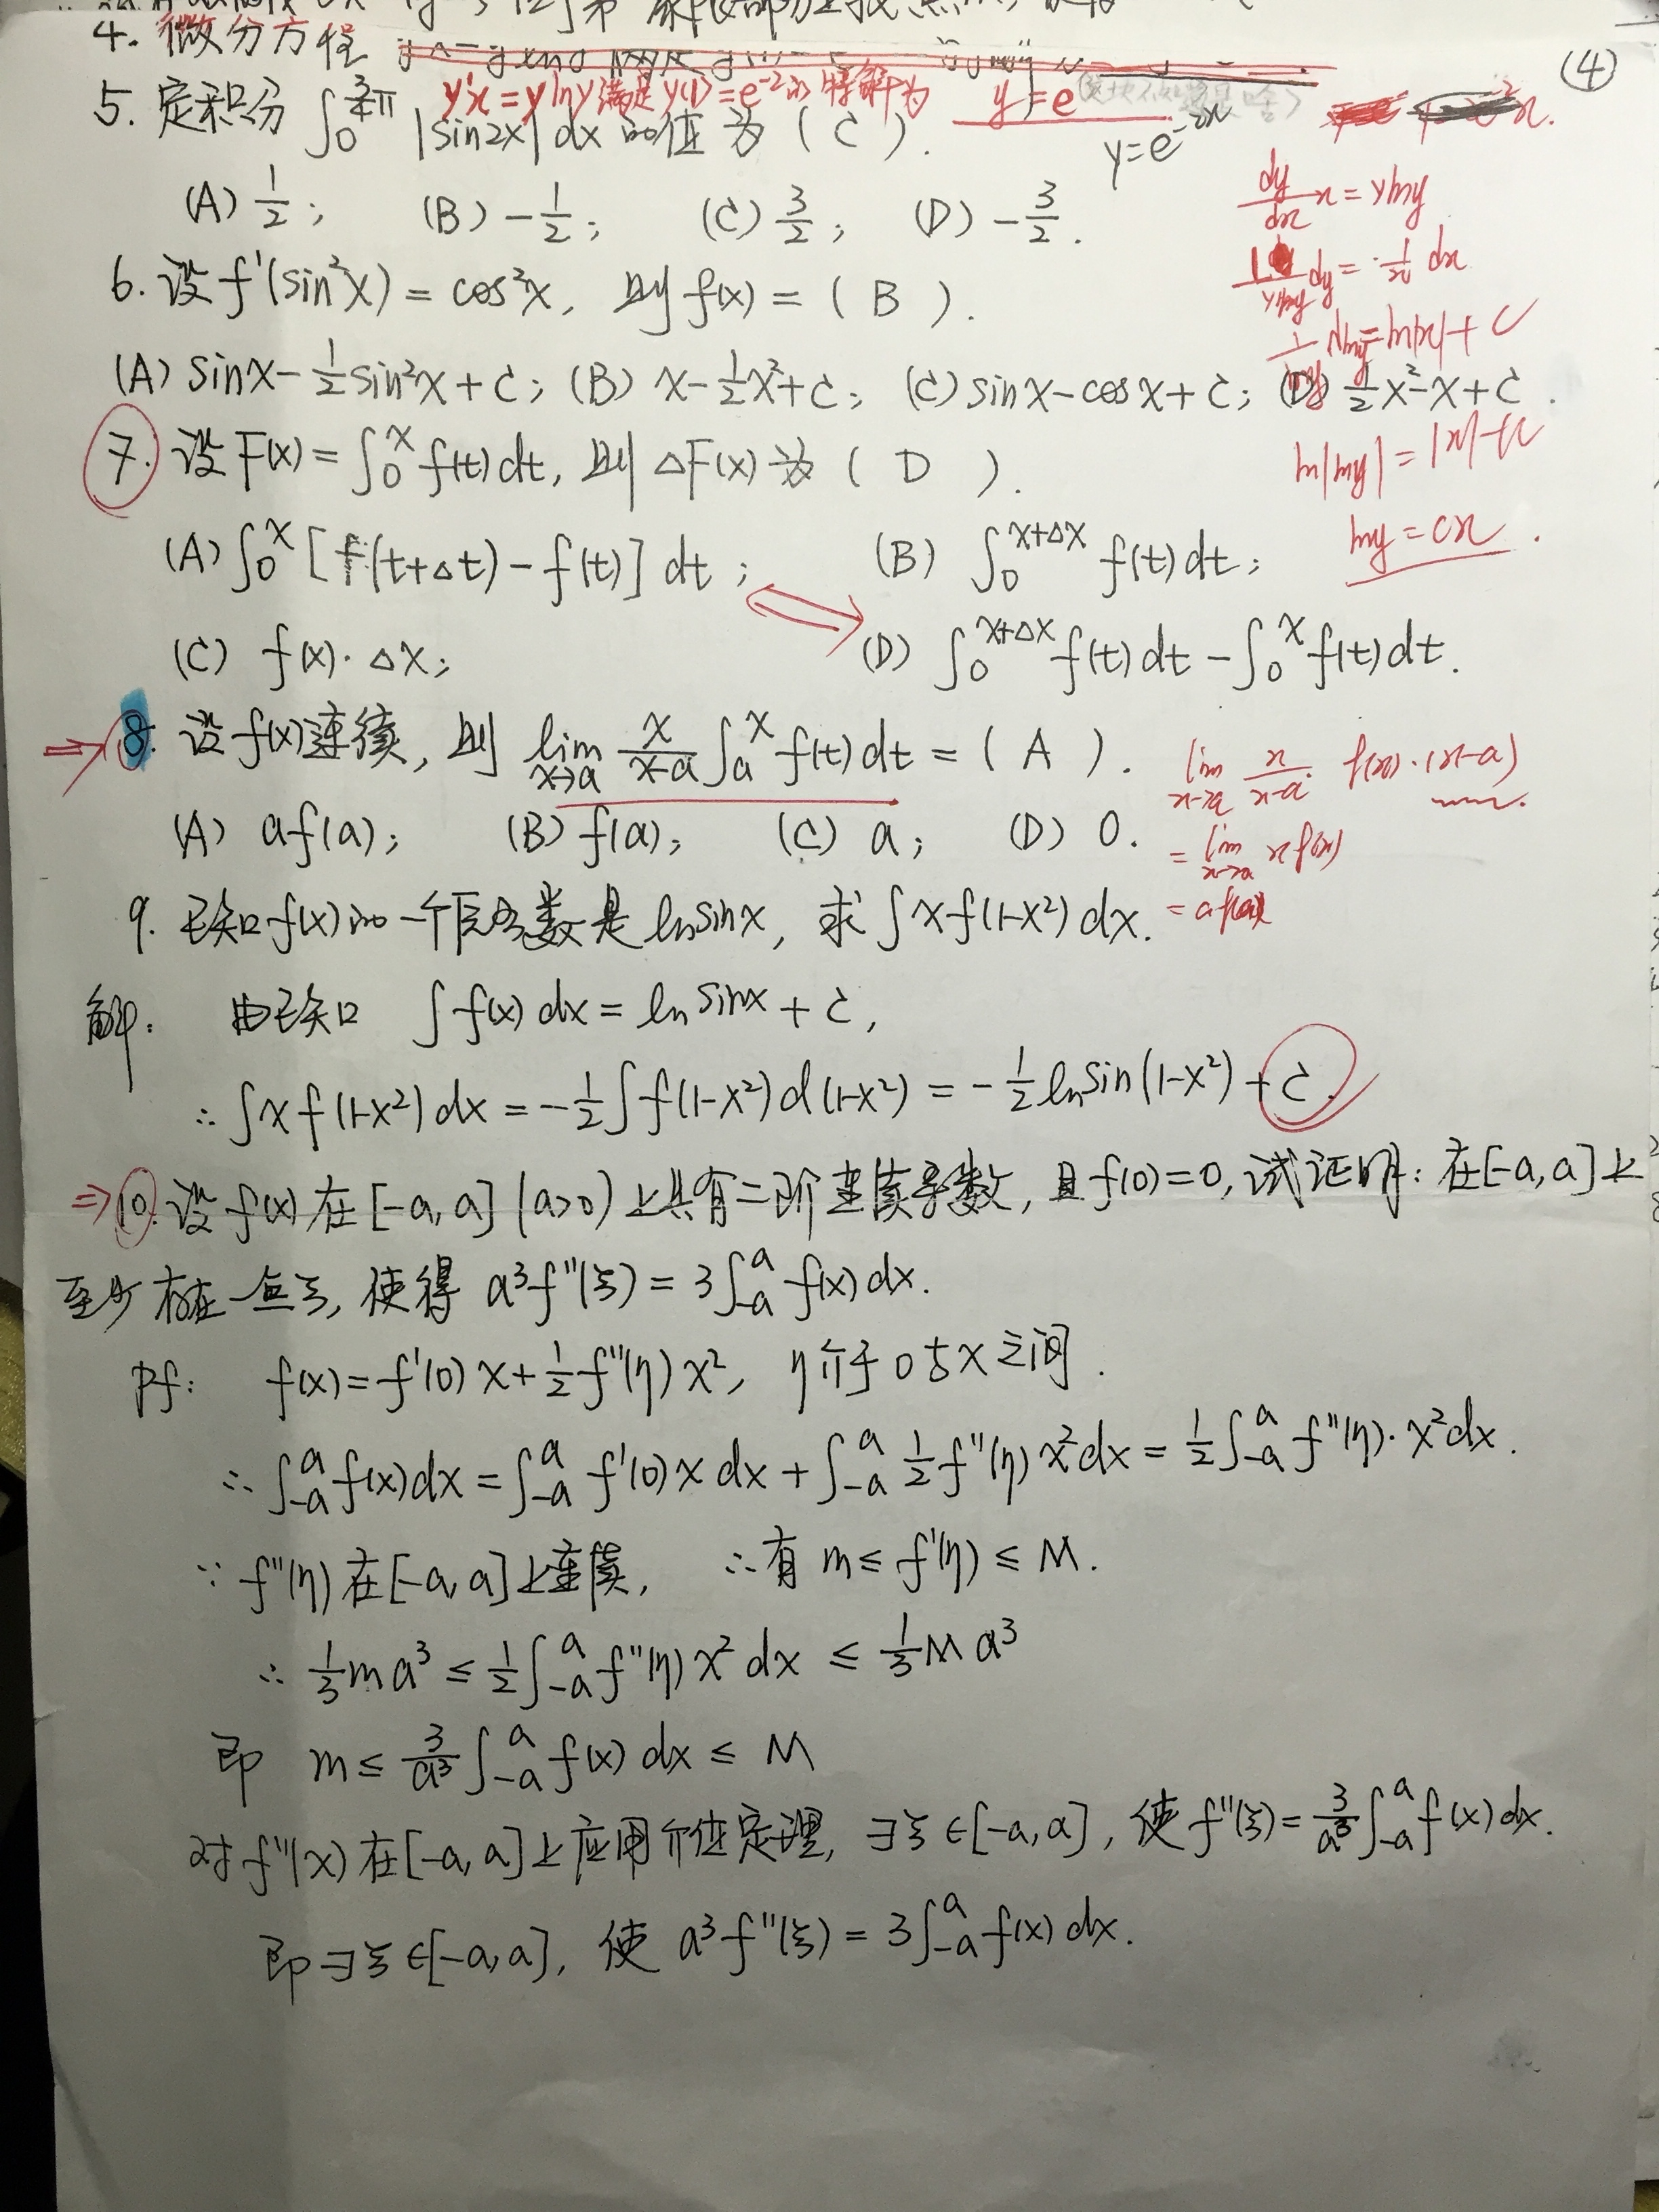 4. 微分方程
y'x = ylny 满足 y(1) = e^{-2} 的特解为 y = e
(4)
y = e^{-2x}
5. 定积分 ∫_0^{\frac{3}{4}π} |sin2x| dx 的值为 ( C ).
(A) \frac{1}{2}; (B) -\frac{1}{2}; (C) \frac{3}{2}; (D) -\frac{3}{2}.
\frac{dy}{dx} x = ylny
\frac{1}{ylny} dy = \frac{1}{x} dx
6. 设 f'(sin²x) = cos²x, 则 f(x) = ( B ).
\frac{1}{lny} dlny = ln|x| + C
(A) sinx - \frac{1}{2}sin²x + C; (B) x - \frac{1}{2}x² + C; (C) sinx - cosx + C; (D) \frac{1}{2}x² - x + C.
ln|lny| =
7. 设 F(x) = ∫_0^x f(t) dt, 则 ΔF(x) 为 ( D ).
lny = cx.
(A) ∫_0^x [f(t+Δt) - f(t)] dt; (B) ∫_0^{x+Δx} f(t) dt;
(C) f(x)·Δx; (D) ∫_0^{x+Δx} f(t) dt - ∫_0^x f(t) dt.
⇒ 8. 设 f(x) 连续, 则 lim_{x→a} \frac{x}{x-a} ∫_a^x f(t) dt = ( A ).
lim_{x→a} \frac{x}{x-a} · f(x)·(x-a)
(A) af(a); (B) f(a); (C) a; (D) 0.
= lim_{x→a} x f(x)
= a f(a)
9. 已知 f(x) 的一个原函数是 lnsinx, 求 ∫ x f(1-x²) dx.
解: 由已知 ∫ f(x) dx = ln sinx + C,
∴ ∫ x f(1-x²) dx = -\frac{1}{2} ∫ f(1-x²) d(1-x²) = -\frac{1}{2} ln sin(1-x²) + C.
⇒ 10. 设 f(x) 在 [-a, a] (a>0) 上具有二阶连续导数, 且 f(0) = 0, 试证明: 在 [-a, a] 上
至少存在一点 ξ, 使得 a³ f''(ξ) = 3 ∫_{-a}^a f(x) dx.
Pf: f(x) = f'(0) x + \frac{1}{2} f''(η) x², η 介于 0 与 x 之间.
∴ ∫_{-a}^a f(x) dx = ∫_{-a}^a f'(0) x dx + ∫_{-a}^a \frac{1}{2} f''(η) x² dx = \frac{1}{2} ∫_{-a}^a f''(η)·x² dx.
∵ f''(η) 在 [-a, a] 上连续, ∴ 有 m ≤ f''(η) ≤ M.
∴ \frac{1}{3} m a³ ≤ \frac{1}{2} ∫_{-a}^a f''(η) x² dx ≤ \frac{1}{3} M a³
即 m ≤ \frac{3}{a³} ∫_{-a}^a f(x) dx ≤ M
对 f''(x) 在 [-a, a] 上应用介值定理, ∃ ξ ∈ [-a, a], 使 f''(ξ) = \frac{3}{a³} ∫_{-a}^a f(x) dx.
即 ∃ ξ ∈ [-a, a], 使 a³ f''(ξ) = 3 ∫_{-a}^a f(x) dx.